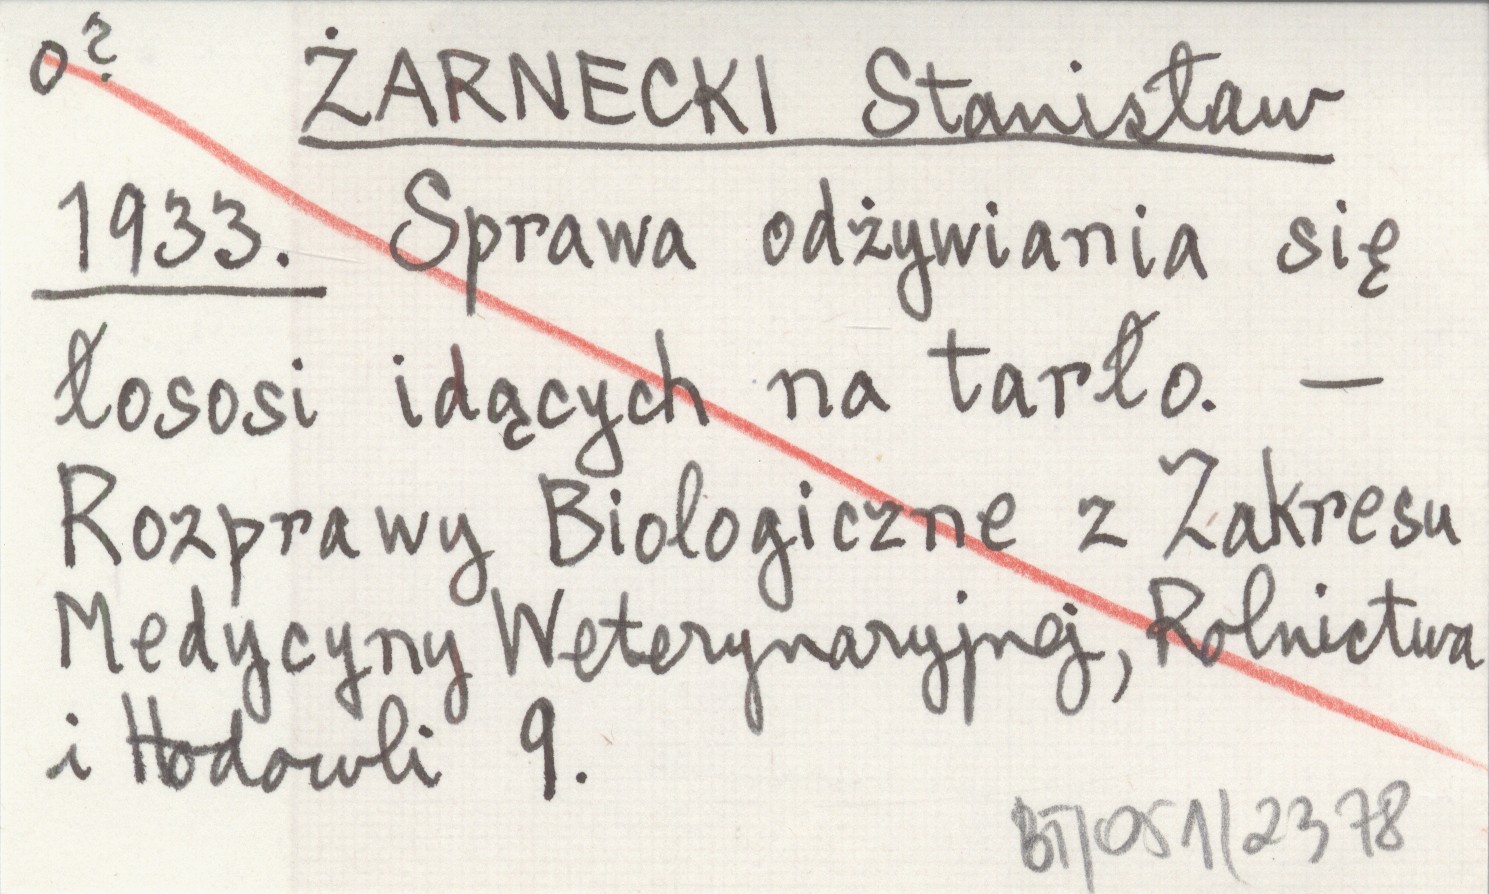 o?
ŻARNECKI Stanisław
1933. Sprawa odżywiania się
łososi idących na tarło. —
Rozprawy Biologiczne z Zakresu
Medycyny Weterynaryjnej, Rolnictwa
i Hodowli 9.
BT/051/2378